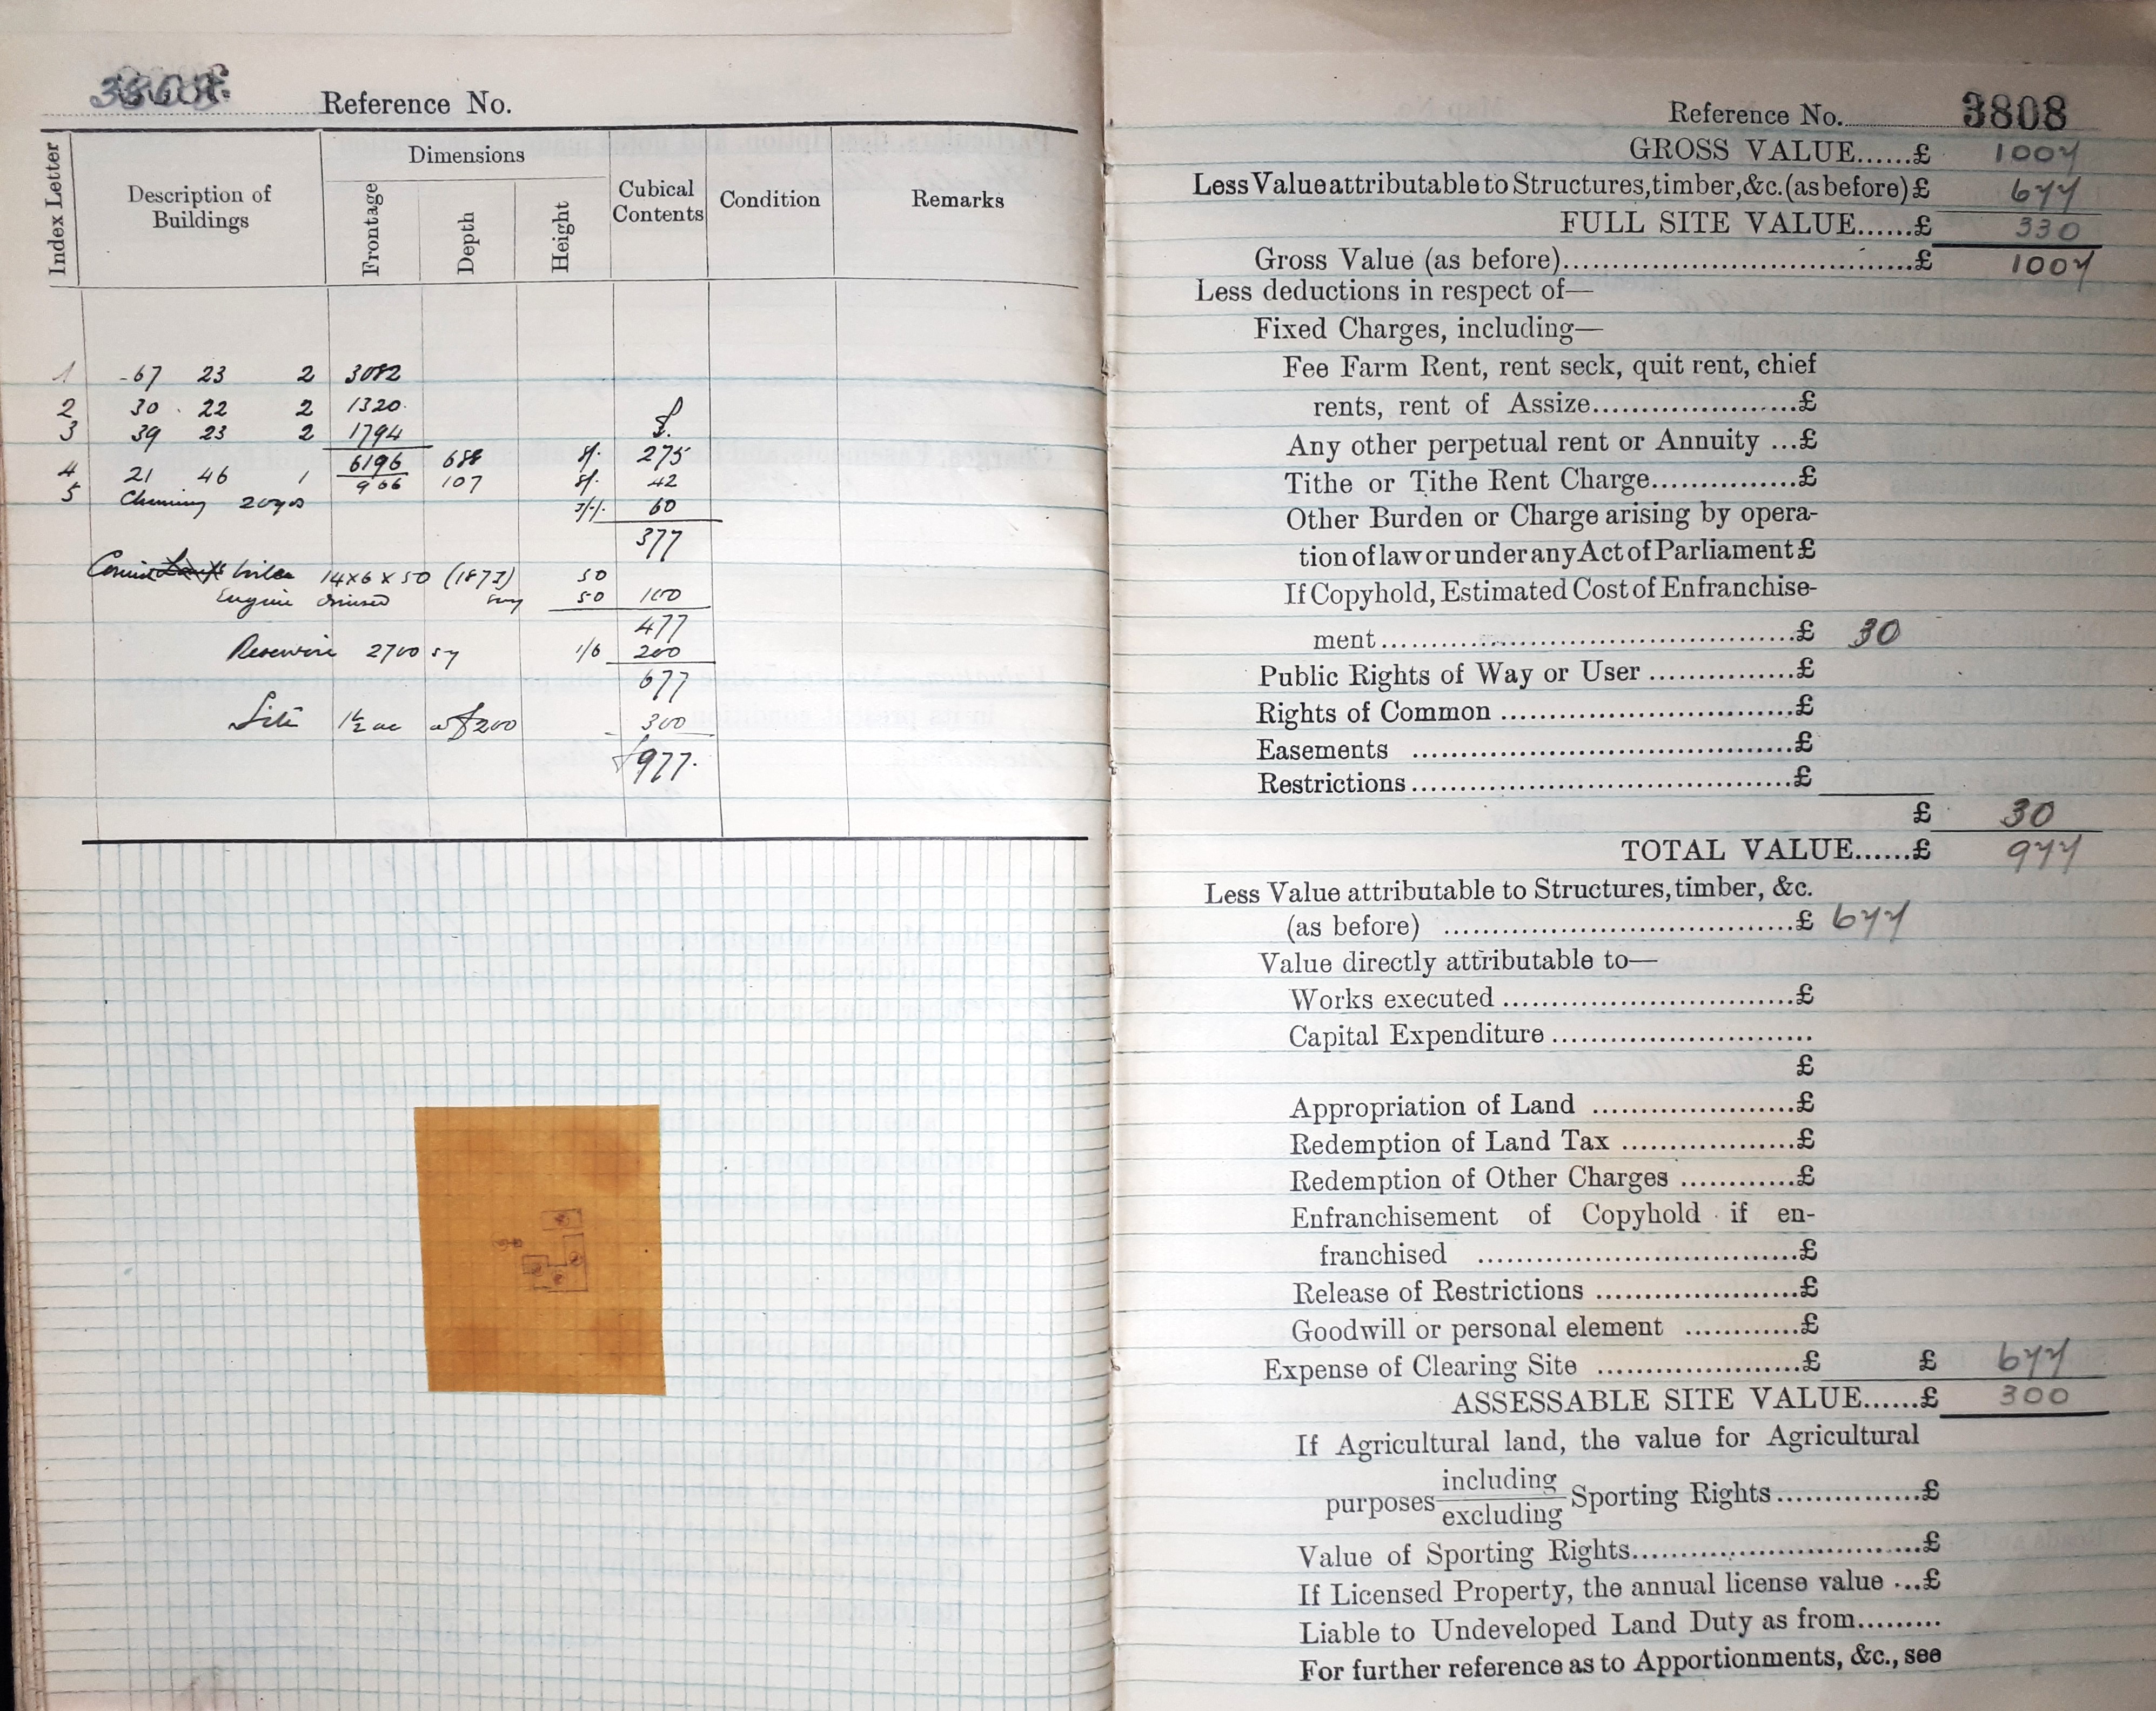 3808 Reference No.
Index Letter
Description of Buildings
Dimensions
Frontage
Depth
Height
Cubical Contents
Condition
Remarks
1 67 23 2 3082
2 30 22 2 1320
3 39 23 2 1794
£
6196 688 8/- 275
4 21 46 1 966 107 8/- 42
5 Chimney 20 yds 3/-/- 60
377
boiler 14 x 6 x 50 (1871) 50
Engine disused say 50 100
477
Reservoir 2700 sy 1/6 200
677
Site 1½ ac at £200 300
£977.
Reference No. 3808
GROSS VALUE......£ 1007
Less Value attributable to Structures, timber, &c. (as before) £ 677
FULL SITE VALUE......£ 330
Gross Value (as before)......£ 1007
Less deductions in respect of—
Fixed Charges, including—
Fee Farm Rent, rent seck, quit rent, chief
rents, rent of Assize......£
Any other perpetual rent or Annuity ...£
Tithe or Tithe Rent Charge......£
Other Burden or Charge arising by opera-
tion of law or under any Act of Parliament £
If Copyhold, Estimated Cost of Enfranchise-
ment......£ 30
Public Rights of Way or User ......£
Rights of Common ......£
Easements ......£
Restrictions......£
£ 30
TOTAL VALUE......£ 977
Less Value attributable to Structures, timber, &c.
(as before) ......£ 677
Value directly attributable to—
Works executed ......£
Capital Expenditure ......
£
Appropriation of Land ......£
Redemption of Land Tax ......£
Redemption of Other Charges ......£
Enfranchisement of Copyhold if en-
franchised ......£
Release of Restrictions ......£
Goodwill or personal element ......£
Expense of Clearing Site ......£ £ 677
ASSESSABLE SITE VALUE......£ 300
If Agricultural land, the value for Agricultural
purposes including
excluding Sporting Rights......£
Value of Sporting Rights......£
If Licensed Property, the annual license value ...£
Liable to Undeveloped Land Duty as from.........
For further reference as to Apportionments, &c., see